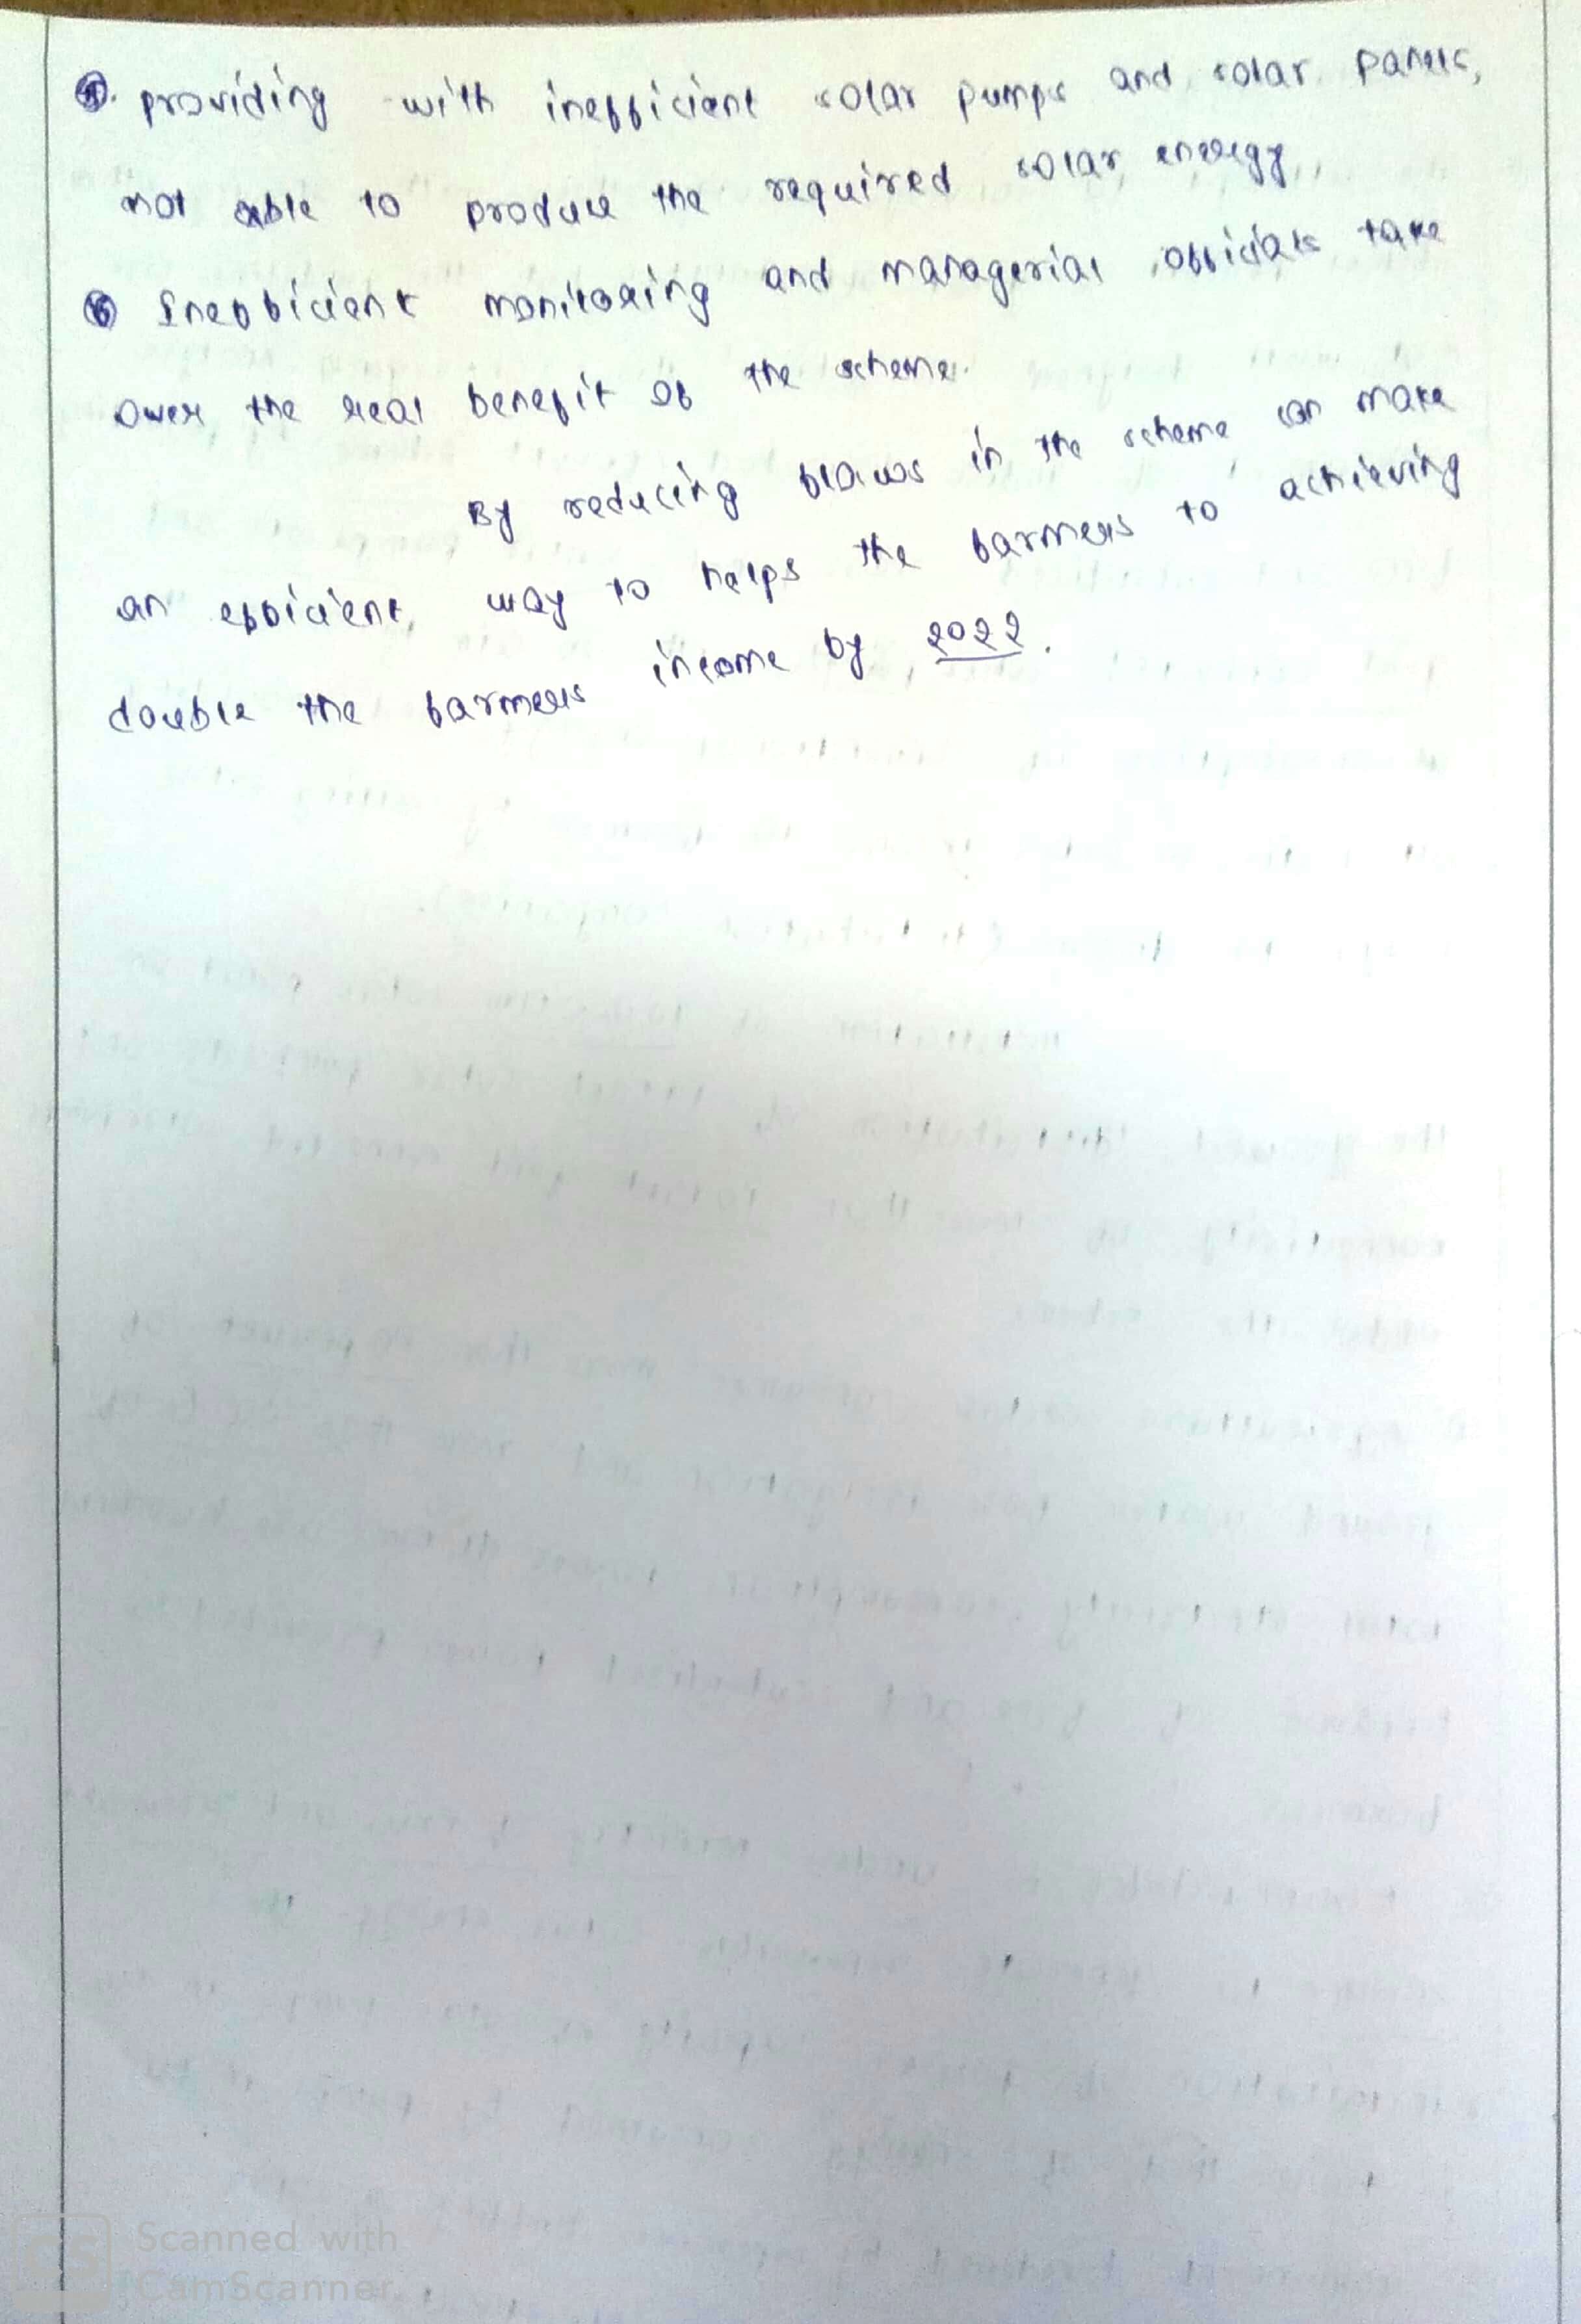 ⑤. providing with inefficient solar pumps and solar panels,
not able to produce the required solar energy
⑥ Inefficient monitoring and managerial officials take
over the real benefit of the scheme.
By reducing flaws in the scheme can make
an efficient way to helps the farmers to achieving
double the farmers income by 2022.
Scanned with
CamScanner